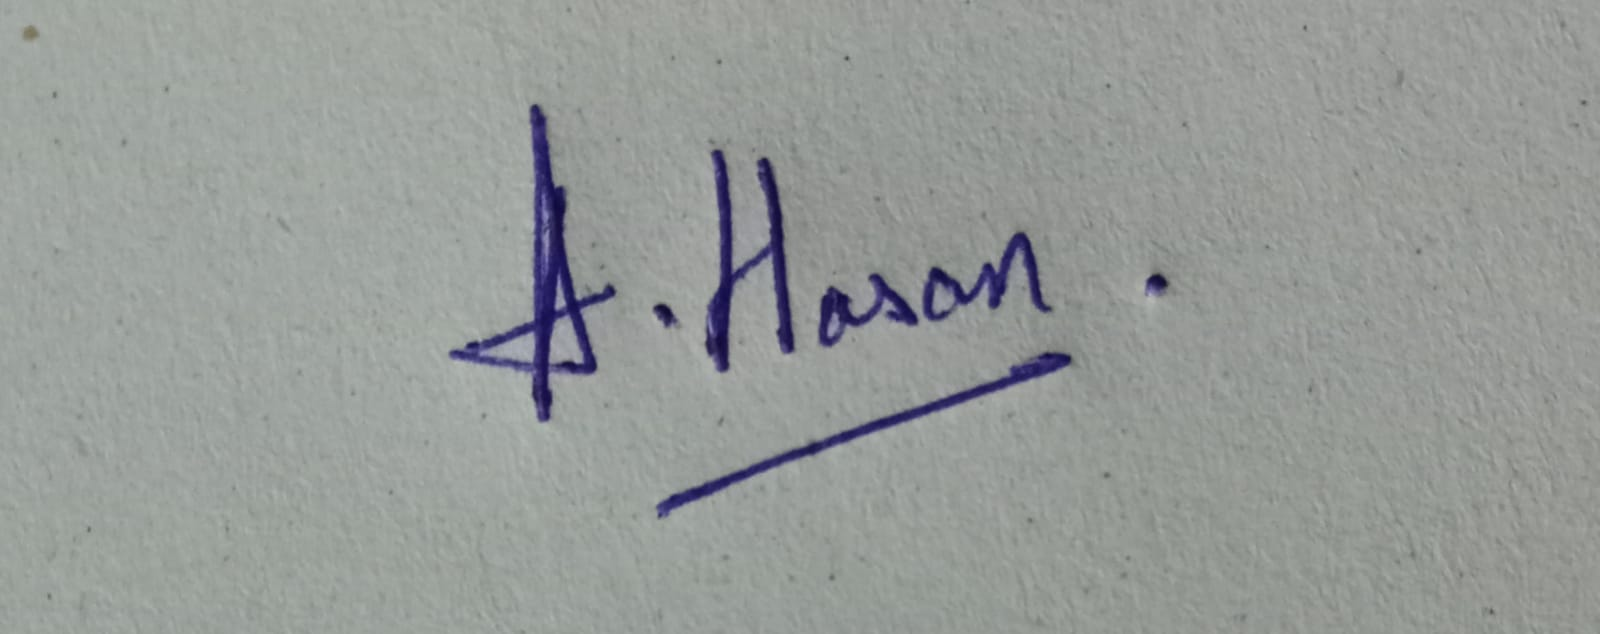 A. Hasan.